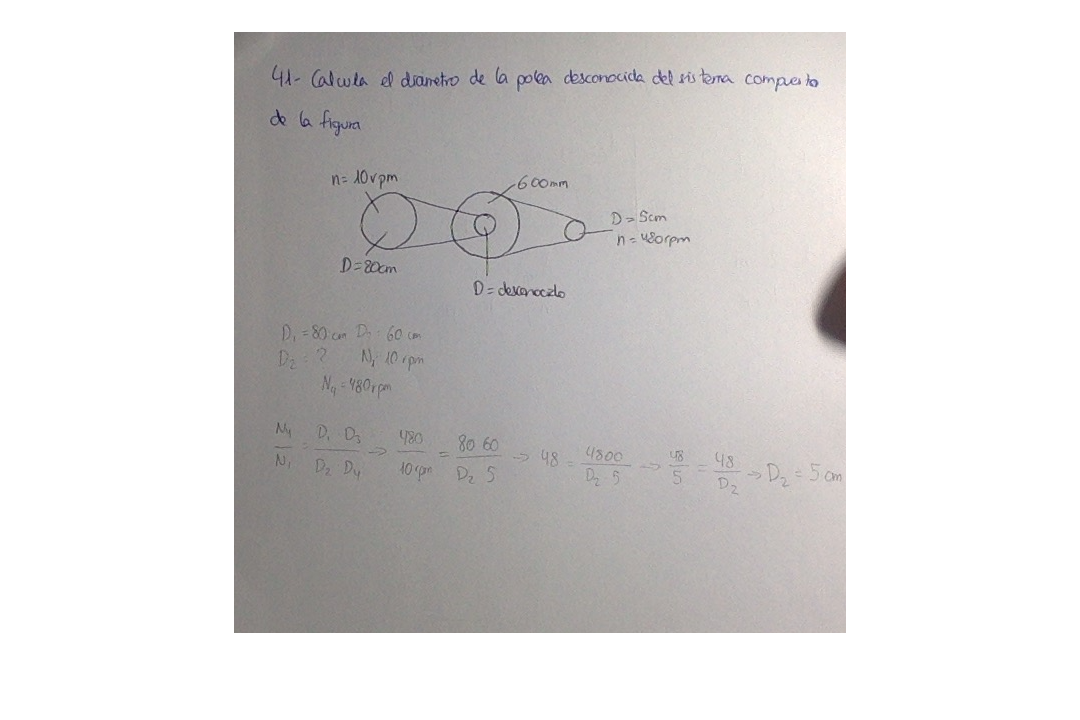 41- Calcula el diametro de la polea desconocida del sistema compuesto
de la figura
n= 10rpm
600mm
D= 5cm
n= 480rpm
D=80cm
D= desconocido
D₁ = 80 cm D₃ : 60 cm
D₂ = ? N₁: 10 rpm
N₄ = 480rpm
N₄/N₁ = D₁ D₃/D₂ D₄ → 480/10 rpm = 80 60/D₂ 5 → 48 = 4800/D₂ 5 → 48/5 = 48/D₂ → D₂ = 5 cm